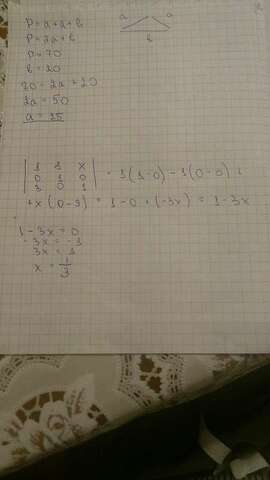 P = a+a+b
a a
b
P = 2a+b
b = 20
70 = 2a + 20
2a = 50
a = 25
| 1 1 x |
| 0 1 0 | = 1(1-0) - 1(0-0) +
| 3 0 1 |
+x(0-3) = 1-0+(-3x) = 1-3x
1-3x = 0
-3x = -1
3x = 1
x = 1/3